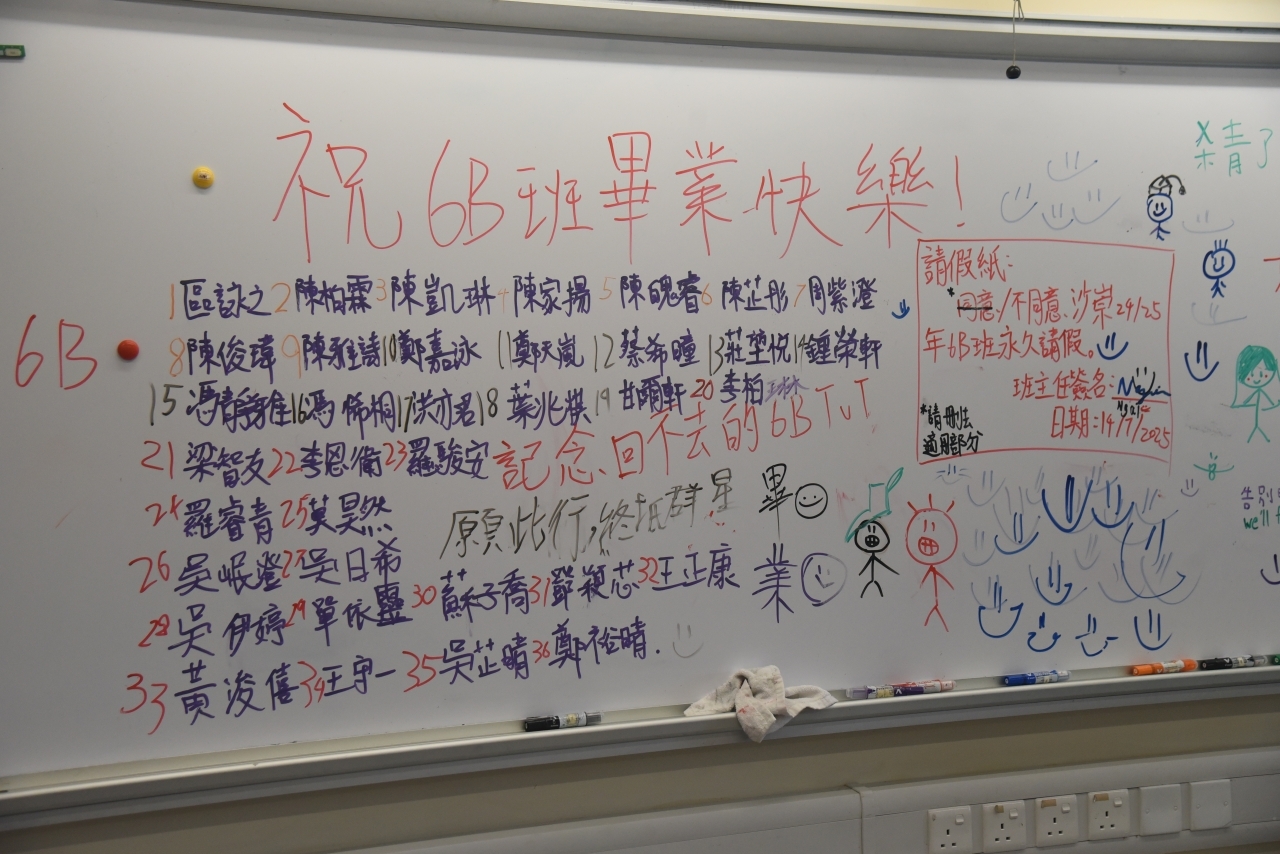 祝6B班畢業快樂!
6B
1區詠之 2陳柏霖 3陳凱琳 4陳家揚 5陳睿 6陳芷彤 7周紫澄
8陳俊瑋 9陳雅詩 10鄭嘉泳 11鄭天嵐 12蔡希瞳 13莊堃悅 14鍾榮軒
15馮 16馮俙桐 17洪亦君 18葉兆祺 19甘爾軒 20李柏琳
21梁智友 22李恩衛 23羅駿安
記念回不去的6B TvT
24羅睿青 25莫昊然
願此行,終抵群星
26吳岷澄 27吳日希
28吳伊婷 29單依靈 30蘇子喬 31鄧穎芯 32王正康
33黃浚僖 34王宇一 35吳芷晴 36鄭裕晴.
畢
業
請假紙:
*同意/不同意、沙崇24/25
年6B班永久請假。
班主任簽名:
日期:14/7/2025
*請刪去
適用部分
青了
告別
we'll